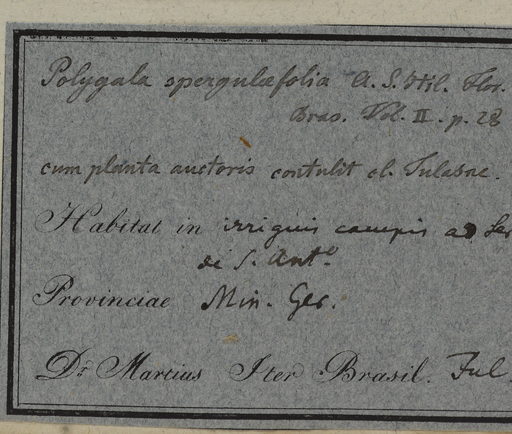 Polygala spergulæfolia A. S. Hil. Flor.
Bras. Vol. II. p. 28
cum planta auctoris contulit cl. Tulasne.
Habitat in irriguis campis ad Ser
de S. Antº.
Provinciae Min. Ger.
Dr. Martius Iter Brasil. Jul.